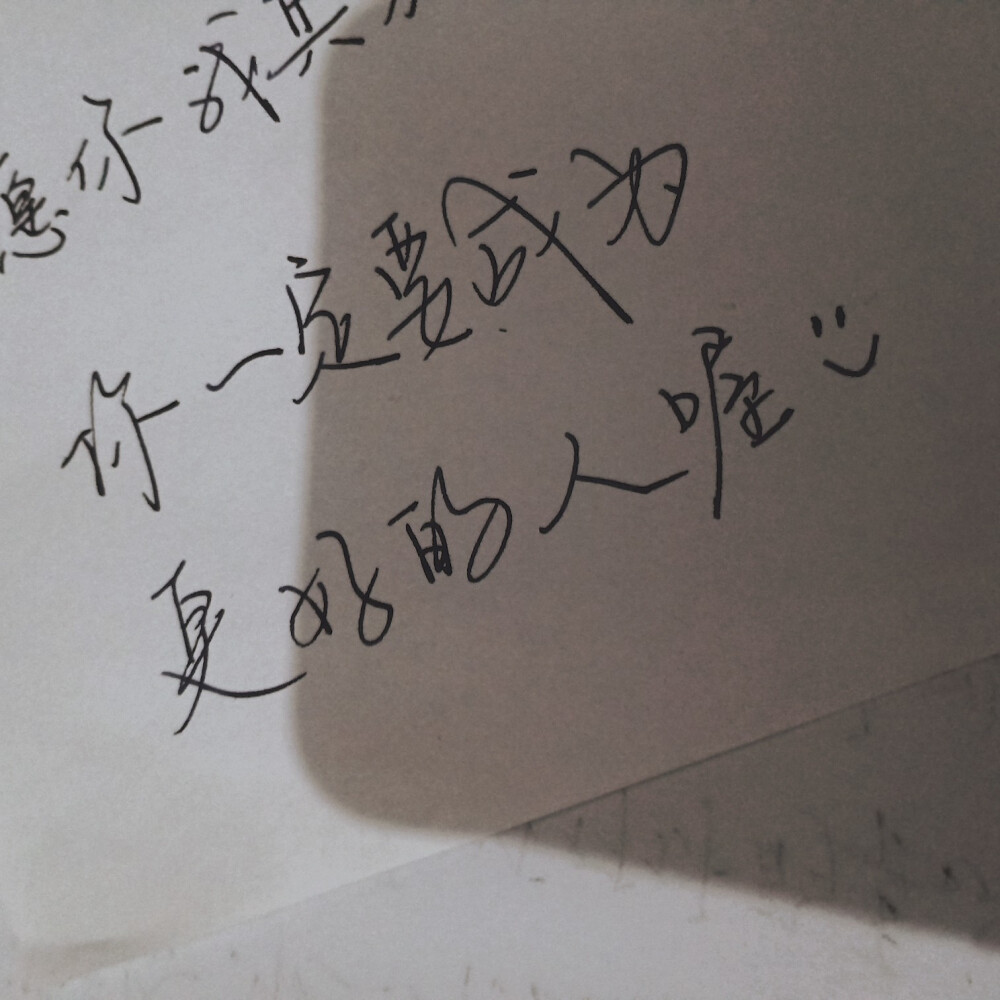 愿你
你一定要成为
更好的人喔